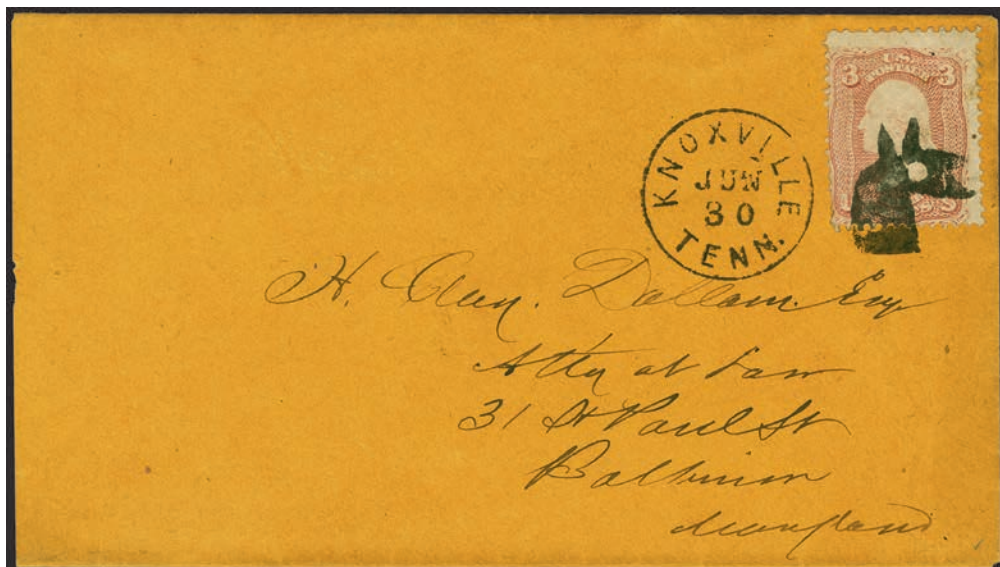 3 U.S. 3
POSTAGE
KNOXVILLE
JUN
30
TENN.
H. Clay. Dallam. Esq
Atty at Law
31 St Paul St
Baltimore
Maryland